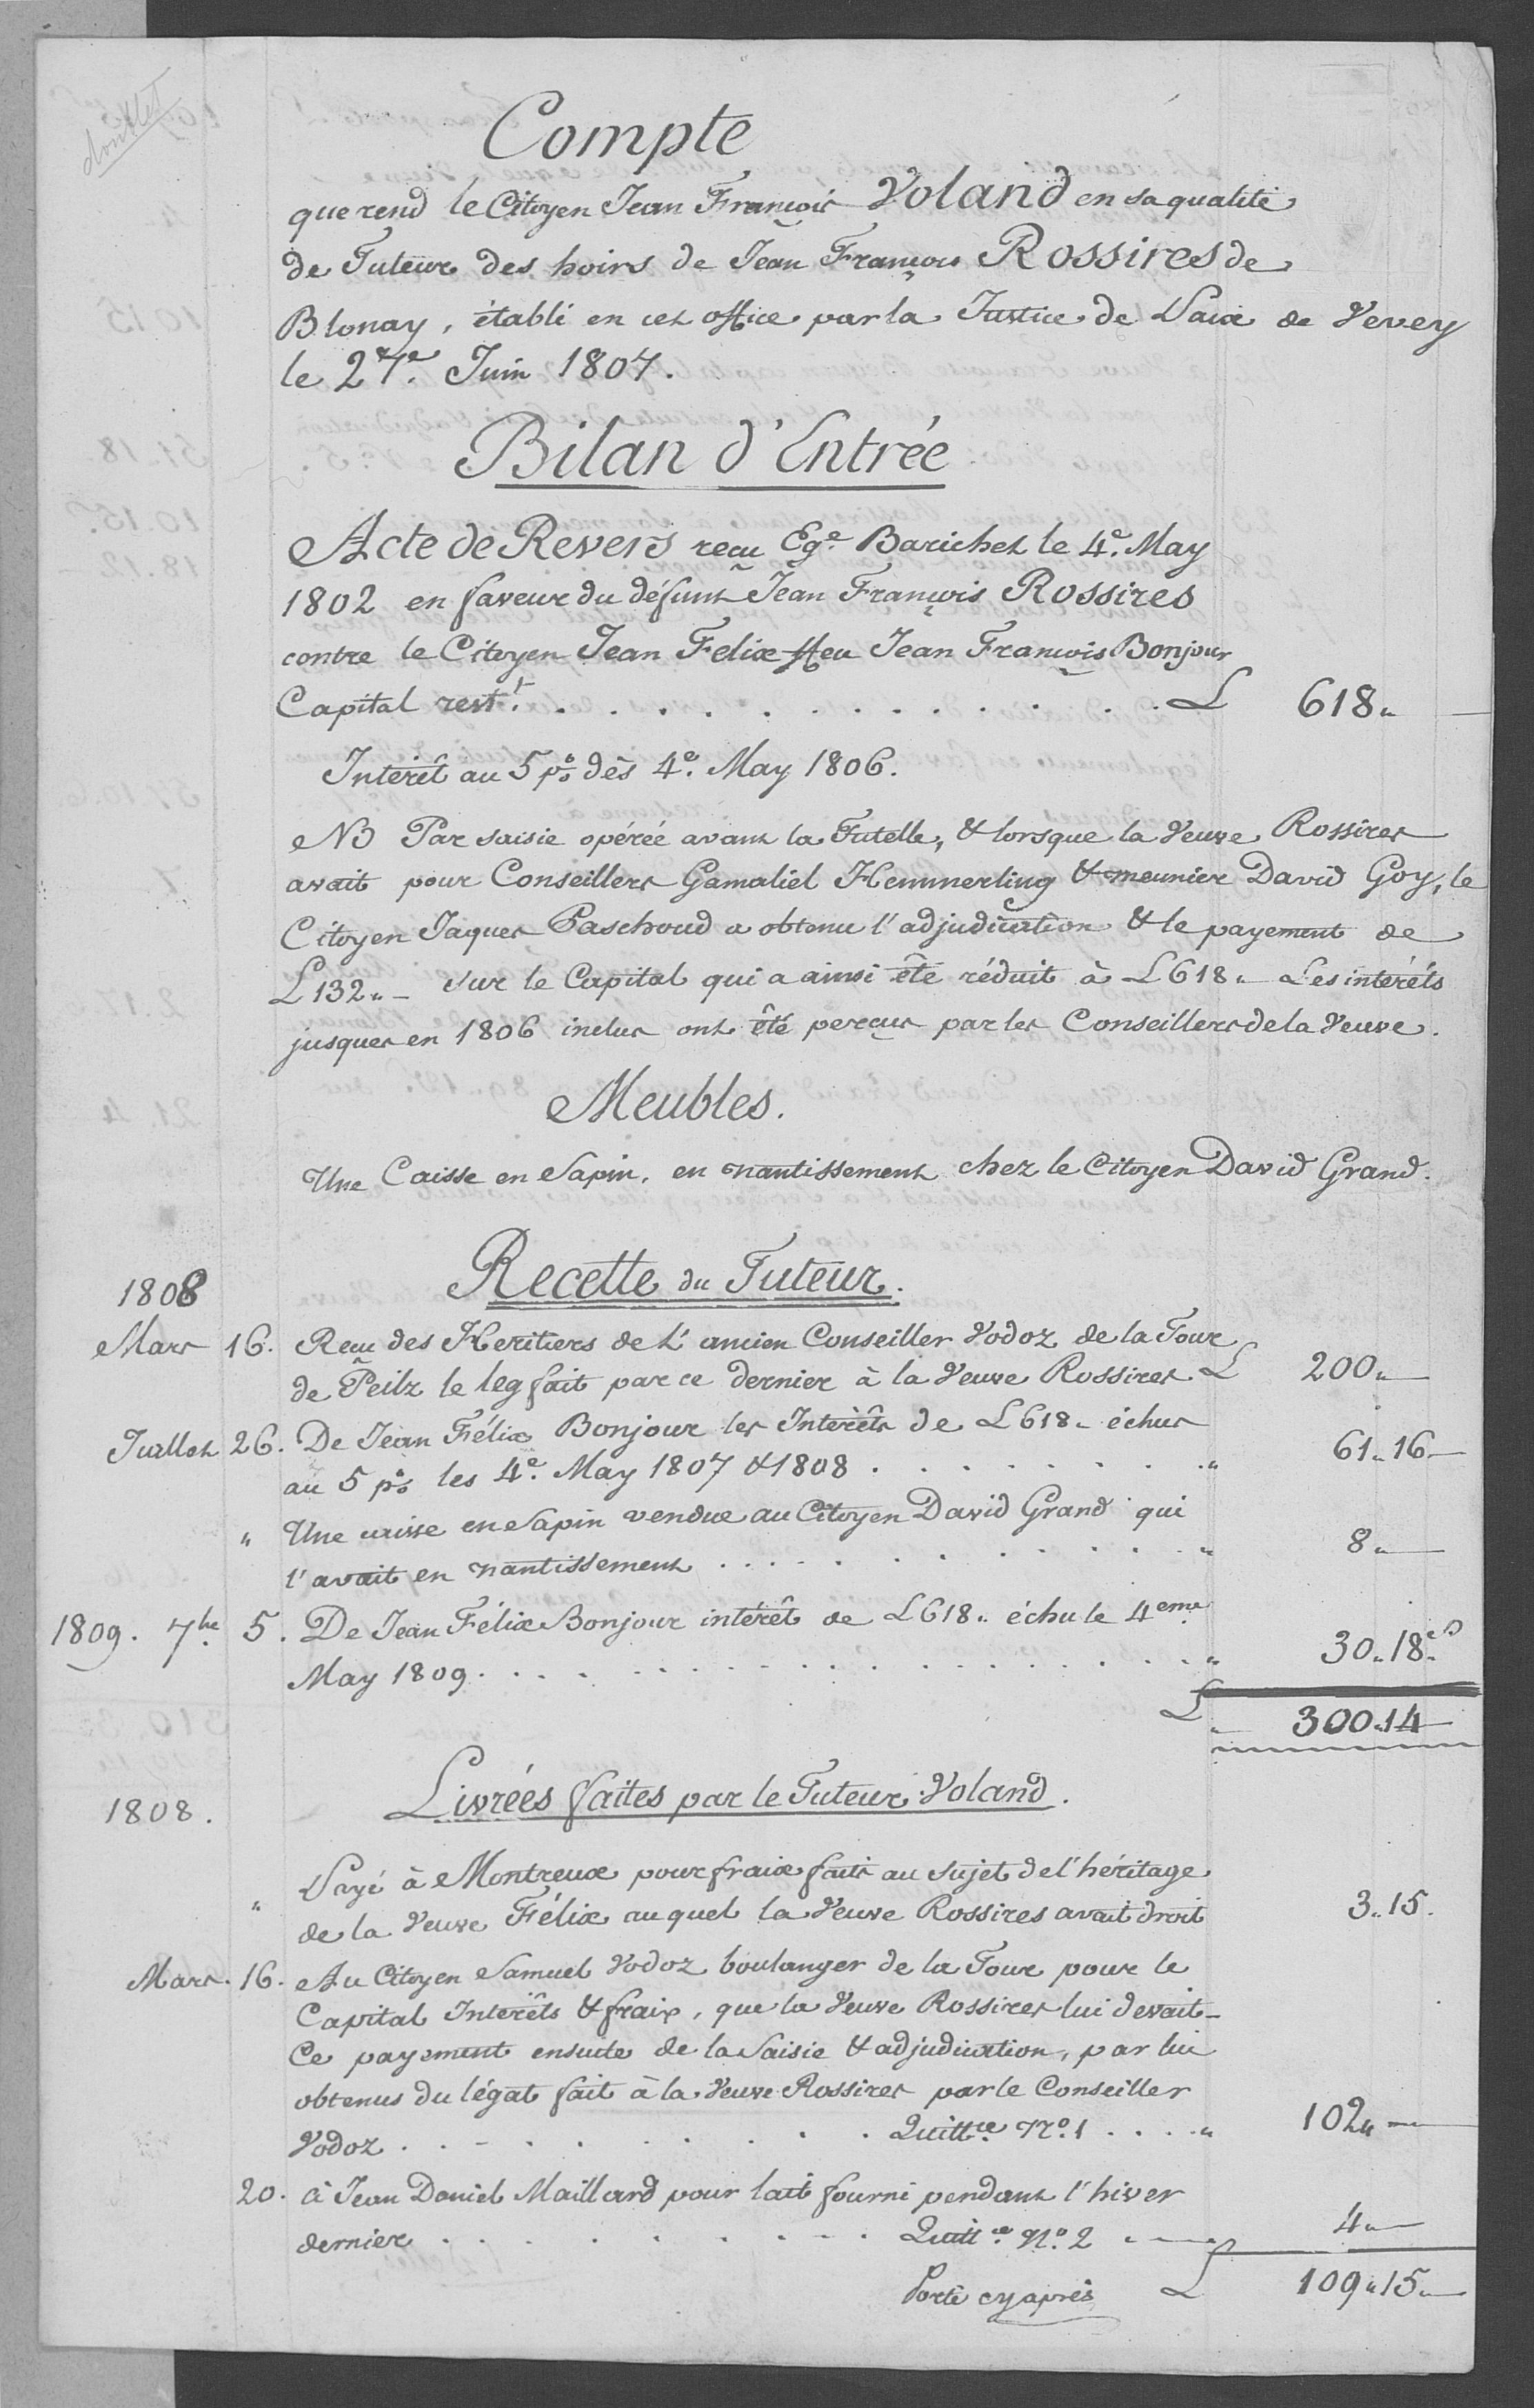 doublet
Compte
que rend le Citoyen Jean François Voland en sa qualité
de Tuteur des hoirs de Jean François Rossires de
Blonay, établi en cet office par la Justice de Paix de Vevey
le 27e. Juin 1807.
Bilan d'Entrée
Acte de Revers reçu Ege. Barichet le 4e. May
1802 en faveur du défunt Jean François Rossires
contre le Citoyen Jean Felix ffeu Jean François Bonjour
Capital restt. . . . . . . . . . . . . . L 618 "
Intérêt au 5 p% dès 4e. May 1806.
NB Par saisie opérée avant la Tutelle, & lorsque la Veuve Rossires
avait pour Conseillers Gamaliel Hemmerling & meunier David Goy, le
Citoyen Jaques Paschoud a obtenu l'adjudication & le payement de
L 132 " - sur le Capital qui a ainsi été réduit à L 618 " Les intérêts
jusques en 1806 inclus ont été perçus par les Conseillers de la Veuve.
Meubles.
Une Caisse en Sapin, en nantissement chez le Citoyen David Grand.
Recette du Tuteur.
1808
Mars 16. Reçu des Heritiers de L'ancien Conseiller Vodoz de la Tour
de Peilz le leg fait par ce dernier à la Veuve Rossires L 200 "
Juillet 26. De Jean Félix Bonjour les Intérêts de L 618 " échus
au 5 p% les 4e. May 1807 & 1808 . . . . . . . " 61 " 16
" Une caisse en Sapin vendue au Citoyen David Grand qui
l'avait en nantissement . . . . . . . . . " 8 "
1809. 7bre 5. De Jean Félix Bonjour intérêt de L 618 " échu le 4eme
May 1809 . . . . . . . . . . . . . " 30 " 18 s
L 300 " 14
Livrées faites par le Tuteur Voland.
1808.
" Payé à Montreux pour fraix faits au sujet de l'héritage
de la Veuve Félix auquel la Veuve Rossires avait droit 3 " 15.
Mars. 16. Au Citoyen Samuel Vodoz boulanger de la Tour pour le
Capital Intérêts & fraix, que la Veuve Rossires lui devait -
Ce payement ensuite de la Saisie & adjudication, par lui
obtenus du légat fait à la Veuve Rossires par le Conseiller
Vodoz . . . . . . . . . Quittce No. 1 . . . . " 102 "
20. à Jean Daniel Maillard pour lait fourni pendant l'hiver
dernier . . . . . . . . Quittce No. 2 4 "
Porté cy après L 109 " 15 "